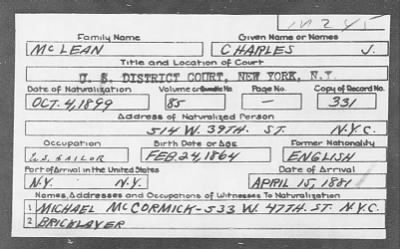 Family Name Given Name or Names
McLEAN CHARLES J.
Title and Location of Court
U. S. DISTRICT COURT, NEW YORK, N.Y.
Date of Naturalization Volume or Bundle No. Page No. Copy of Record No.
OCT. 4, 1899 85 — 331
Address of Naturalized Person
514 W. 39TH. ST. N.Y.C.
Occupation Birth Date or Age Former Nationality
U.S. SAILOR FEB. 24, 1864 ENGLISH
Port of Arrival in the United States Date of Arrival
N.Y. N.Y. APRIL 15, 1881
Names, Addresses and Occupations of Witnesses To Naturalization
1 MICHAEL McCORMICK-533 W. 47TH. ST. N.Y.C.
2 BRICKLAYER